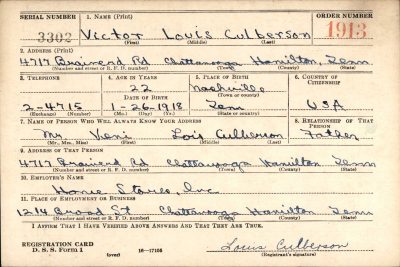 SERIAL NUMBER 1. NAME (Print) ORDER NUMBER
3302 Victor Louis Culberson 1913
(First) (Middle) (Last)
2. ADDRESS (Print)
4717 Brainerd Rd Chattanooga Hamilton, Tenn
(Number and street or R. F. D. number) (Town) (County) (State)
3. TELEPHONE 4. AGE IN YEARS 5. PLACE OF BIRTH 6. COUNTRY OF CITIZENSHIP
22 Nashville
DATE OF BIRTH (Town or county)
2-4715 1-26-1918 Tenn USA
(Exchange) (Number) (Mo.) (Day) (Yr.) (State or country)
7. NAME OF PERSON WHO WILL ALWAYS KNOW YOUR ADDRESS 8. RELATIONSHIP OF THAT PERSON
Mr. Lois Culberson Father
(Mr., Mrs., Miss) (First) (Middle) (Last)
9. ADDRESS OF THAT PERSON
4717 Brainerd Rd Chattanooga Hamilton Tenn
(Number and street or R. F. D. number) (Town) (County) (State)
10. EMPLOYER'S NAME
Home Stores, Inc.
11. PLACE OF EMPLOYMENT OR BUSINESS
1214 Broad St. Chattanooga Hamilton Tenn
(Number and street or R. F. D. number) (Town) (County) (State)
I AFFIRM THAT I HAVE VERIFIED ABOVE ANSWERS AND THAT THEY ARE TRUE.
REGISTRATION CARD
D. S. S. Form 1 (over) 16—17105
Louis Culberson
(Registrant's signature)